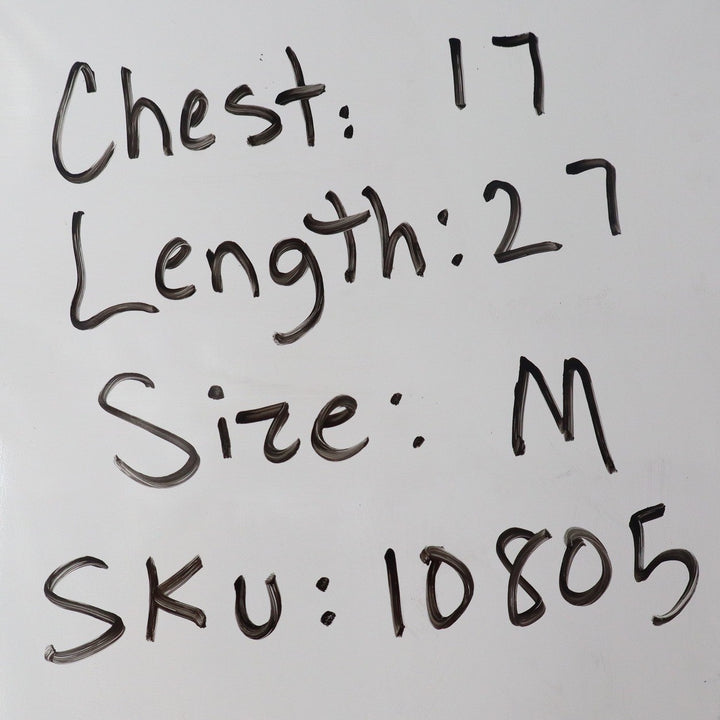 Chest: 17
Length: 27
Size: M
SKU: 10805